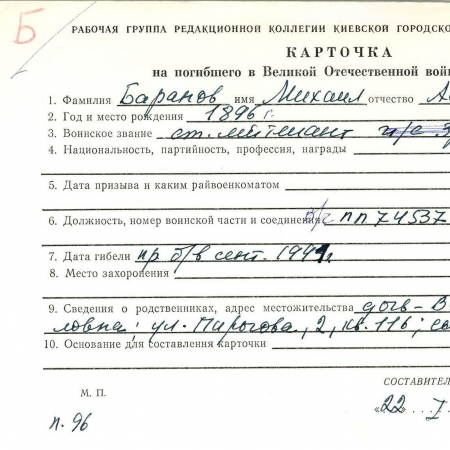 Б
РАБОЧАЯ ГРУППА РЕДАКЦИОННОЙ КОЛЛЕГИИ КИЕВСКОЙ ГОРОДСКО
КАРТОЧКА
на погибшего в Великой Отечественной вой
1. Фамилия Баранов имя Михаил отчество
2. Год и место рождения 1896 г.
3. Воинское звание ст. лейтенант
4. Национальность, партийность, профессия, награды
5. Дата призыва и каким райвоенкоматом
6. Должность, номер воинской части и соединения в/ч пп 74537
7. Дата гибели пр. б/в сент. 1941г.
8. Место захоронения
9. Сведения о родственниках, адрес местожительства дочь - В
ловна; ул. Пирогова, 2, кв. 116;
10. Основание для составления карточки
СОСТАВИТЕЛ
М. П.
«22»
п. 96